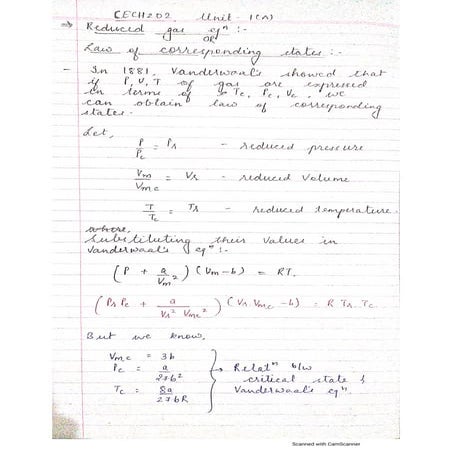 CECH202 Unit - 1(A)
Reduced gas eqⁿ :-
OR
Law of corresponding states :-
- In 1881, Vanderwaal's showed that
if P, V, T of gas are expressed
in terms of Tc, Pc, Vc, we
can obtain law of corresponding
states.
Let,
P/Pc = Pr - reduced pressure
Vm/Vmc = Vr - reduced volume
T/Tc = Tr - reduced temperature.
where,
Substituting their values in
Vanderwaal's eqⁿ :-
(P + a/Vm²) (Vm - b) = RT.
(Pr Pc + a/Vr² Vmc²) (Vr Vmc - b) = R Tr. Tc.
But we know,
Vmc = 3b
Pc = a/27b² → Relatⁿ b/w
critical state &
Tc = 8a/27bR Vanderwaal's eqⁿ.
Scanned with CamScanner